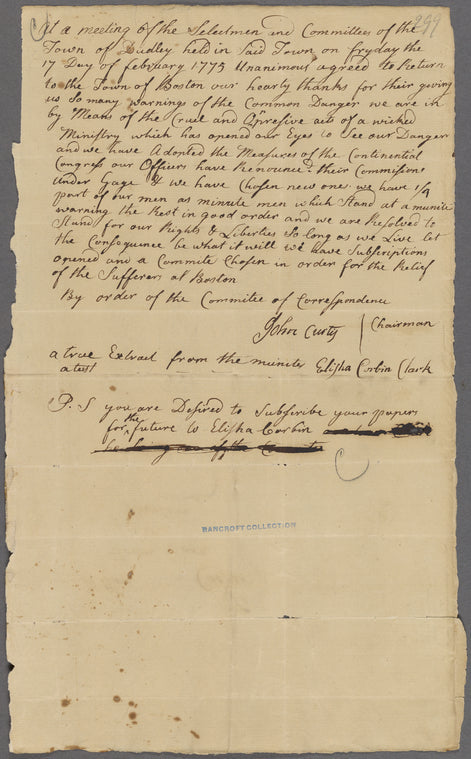 299
At a meeting of the Selectmen and Committees of the
Town of Dudley held in Said Town on fryday the
17 Day of february 1775 Unanimous agreed to Return
to the Town of Boston our hearty thanks for their giving
us So many warnings of the Common Danger we are in
by Means of the Cruel and Opresive acts of a wicked
Ministry which has opened our Eyes to See our Danger
and we have Adopted the Measures of the Continental
Congress our Officers have Renounced their Commissions
under Gage & we have Chosen new one we have 1/4
part of our men as minute men which Stand at a munite
warning the Rest in good order and we are Resolved to
Stand for our Rights & Liberties So long as we Live let
the Consequence be what it will we have Subscriptions
opened and a Commite Chosen in order for the Relief
of the Sufferers at Boston
By order of the Commitee of Correspondence
John Curtis | Chairman
a true Extract from the munites Elisha Corbin Clark
atest
P. S you are Desired to Subscribe your papers
for the future to Elisha Corbin
BANCROFT COLLECTION